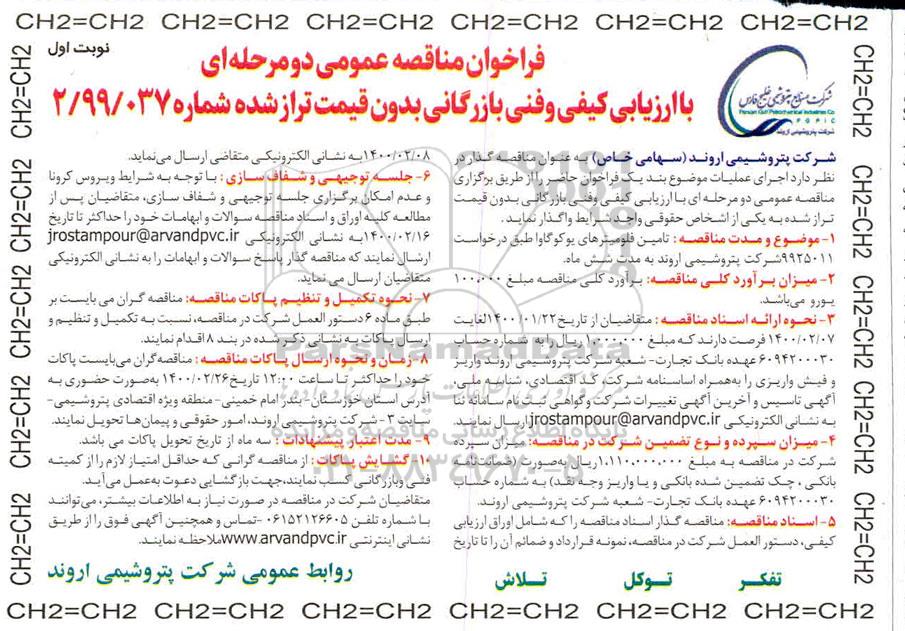 CH2=CH2 CH2=CH2 CH2=CH2 CH2=CH2 CH2=CH2 CH2=CH2
نوبت اول
فراخوان مناقصه عمومی دو مرحله ای
با ارزیابی کیفی وفنی بازرگانی بدون قیمت تراز شده شماره ۲/۹۹/۰۳۷
شرکت صنایع پتروشیمی خلیج فارس
Persian Gulf Petrochemical Industries Co
P G P I C
شرکت پتروشیمی اروند
شرکت پتروشیمی اروند (سهامی خاص) به عنوان مناقصه گذار در
نظر دارد اجرای عملیات موضوع بند یک فراخوان حاضر را از طریق برگزاری
مناقصه عمومی دو مرحله ای با ارزیابی کیفی وفنی بازرگانی بدون قیمت
تراز شده به یکی از اشخاص حقوقی واجد شرایط واگذار نماید.
۱- موضوع و مدت مناقصه : تامین فلومیترهای یوکوگاوا طبق درخواست
۹۹۲۵۰۱۱شرکت پتروشیمی اروند به مدت شش ماه.
۲- میزان برآورد کلی مناقصه: برآورد کلی مناقصه مبلغ ۱۰۰.۰۰۰
یورو می‌باشد.
۳- نحوه ارائه اسناد مناقصه : متقاضیان از تاریخ ۱۴۰۰/۰۱/۲۲ لغایت
۱۴۰۰/۰۲/۰۷ فرصت دارند که مبلغ ۱.۰۰۰.۰۰۰ ریال را به شماره حساب
۶۰۹۴۲۰۰۰۳۰ عهده بانک تجارت- شعبه شرکت پتروشیمی اروند واریز
و فیش واریزی را به‌همراه اساسنامه شرکت، کد اقتصادی، شناسه ملی،
آگهی تاسیس و آخرین آگهی تغییرات شرکت و گواهی ثبت نام سامانه ثنا
به نشانی الکترونیکی jrostampour@arvandpvc.ir ارسال نمایند.
۴- میزان سپرده و نوع تضمین شرکت در مناقصه: میزان سپرده
شرکت در مناقصه به مبلغ ۱.۱۱۰.۰۰۰.۰۰۰ریال (به‌صورت ضمانت‌نامه
بانکی ، چک تضمین شده بانکی و یا واریز وجه نقد) به شماره حساب
۶۰۹۴۲۰۰۰۳۰ عهده بانک تجارت- شعبه شرکت پتروشیمی اروند.
۵- اسناد مناقصه: مناقصه گذار اسناد مناقصه را که شامل اوراق ارزیابی
کیفی، دستور العمل شرکت در مناقصه، نمونه قرارداد و ضمائم آن را تا تاریخ
۱۴۰۰/۰۲/۰۸به نشانی الکترونیکی متقاضی ارسال می‌نماید.
۶- جلسه توجیهی و شفاف سازی : با توجه به شرایط ویروس کرونا
و عدم امکان برگزاری جلسه توجیهی و شفاف سازی، متقاضیان پس از
مطالعه کلیه اوراق و اسناد مناقصه سوالات و ابهامات خود را حداکثر تا تاریخ
۱۴۰۰/۰۲/۱۶به نشانی الکترونیکی jrostampour@arvandpvc.ir
ارسال نمایند که مناقصه گذار پاسخ سوالات و ابهامات را به نشانی الکترونیکی
متقاضیان ارسال می نماید.
۷- نحوه تکمیل و تنظیم پاکات مناقصه: مناقصه گران می بایست بر
طبق ماده ۶ دستور العمل شرکت در مناقصه، نسبت به تکمیل و تنظیم و
ارسال پاکات به نشانی ذکر شده در بند ۸ اقدام نمایند.
۸- زمان و نحوه ارسال پاکات مناقصه : مناقصه گران می‌بایست پاکات
خود را حداکثر تا ساعت ۱۲:۰۰ تاریخ ۱۴۰۰/۰۲/۲۶ به‌صورت حضوری به
آدرس استان خوزستان- بندر امام خمینی- منطقه ویژه اقتصادی پتروشیمی-
سایت ۳- شرکت پتروشیمی اروند، امور حقوقی و پیمان‌ها تحویل نمایند.
۹- مدت اعتبار پیشنهادات : سه ماه از تاریخ تحویل پاکات می باشد.
۱۰- گشایش پاکات : از مناقصه گرانی که حداقل امتیاز لازم را از کمیته
فنی وبازرگانی کسب نمایند، جهت بازگشایی دعوت به‌عمل می‌آید.
متقاضیان شرکت در مناقصه در صورت نیاز به اطلاعات بیشتر، می‌توانند
با شماره تلفن ۰۶۱۵۲۱۲۶۶۰۵ -تماس و همچنین آگهی فوق را از طریق
نشانی اینترنتی www.arvandpvc.irملاحظه نمایند.
تفکر توکل تلاش
روابط عمومی شرکت پتروشیمی اروند
CH2=CH2 CH2=CH2 CH2=CH2 CH2=CH2 CH2=CH2 CH2=CH2
CH2=CH2 CH2=CH2 CH2=CH2 CH2=CH2 CH2=CH2
CH2=CH2 CH2=CH2 CH2=CH2 CH2=CH2 CH2=CH2
ParsNamadData
پایگاه اطلاع رسانی مناقصه و مزایده
۰۲۱-۸۸۳۴۹۶۷۰-۵